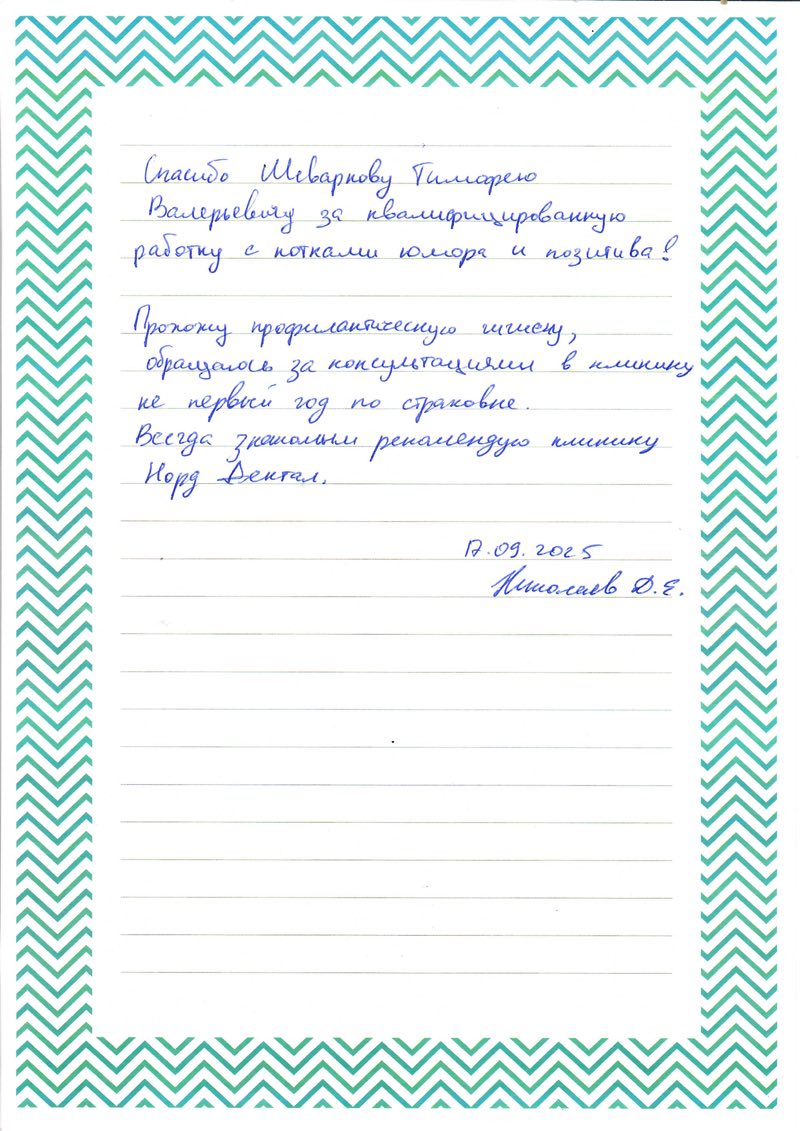 Спасибо Шеваркову Тимофею
Валерьевичу за квалифицированную
работку с нотками юмора и позитива!
Прохожу профилактическую гигиену,
обращаюсь за консультациями в клинику
не первый год по страховке.
Всегда знакомым рекомендую клинику
Норд Дентал.
17.09.2025
Николаев Д.Е.